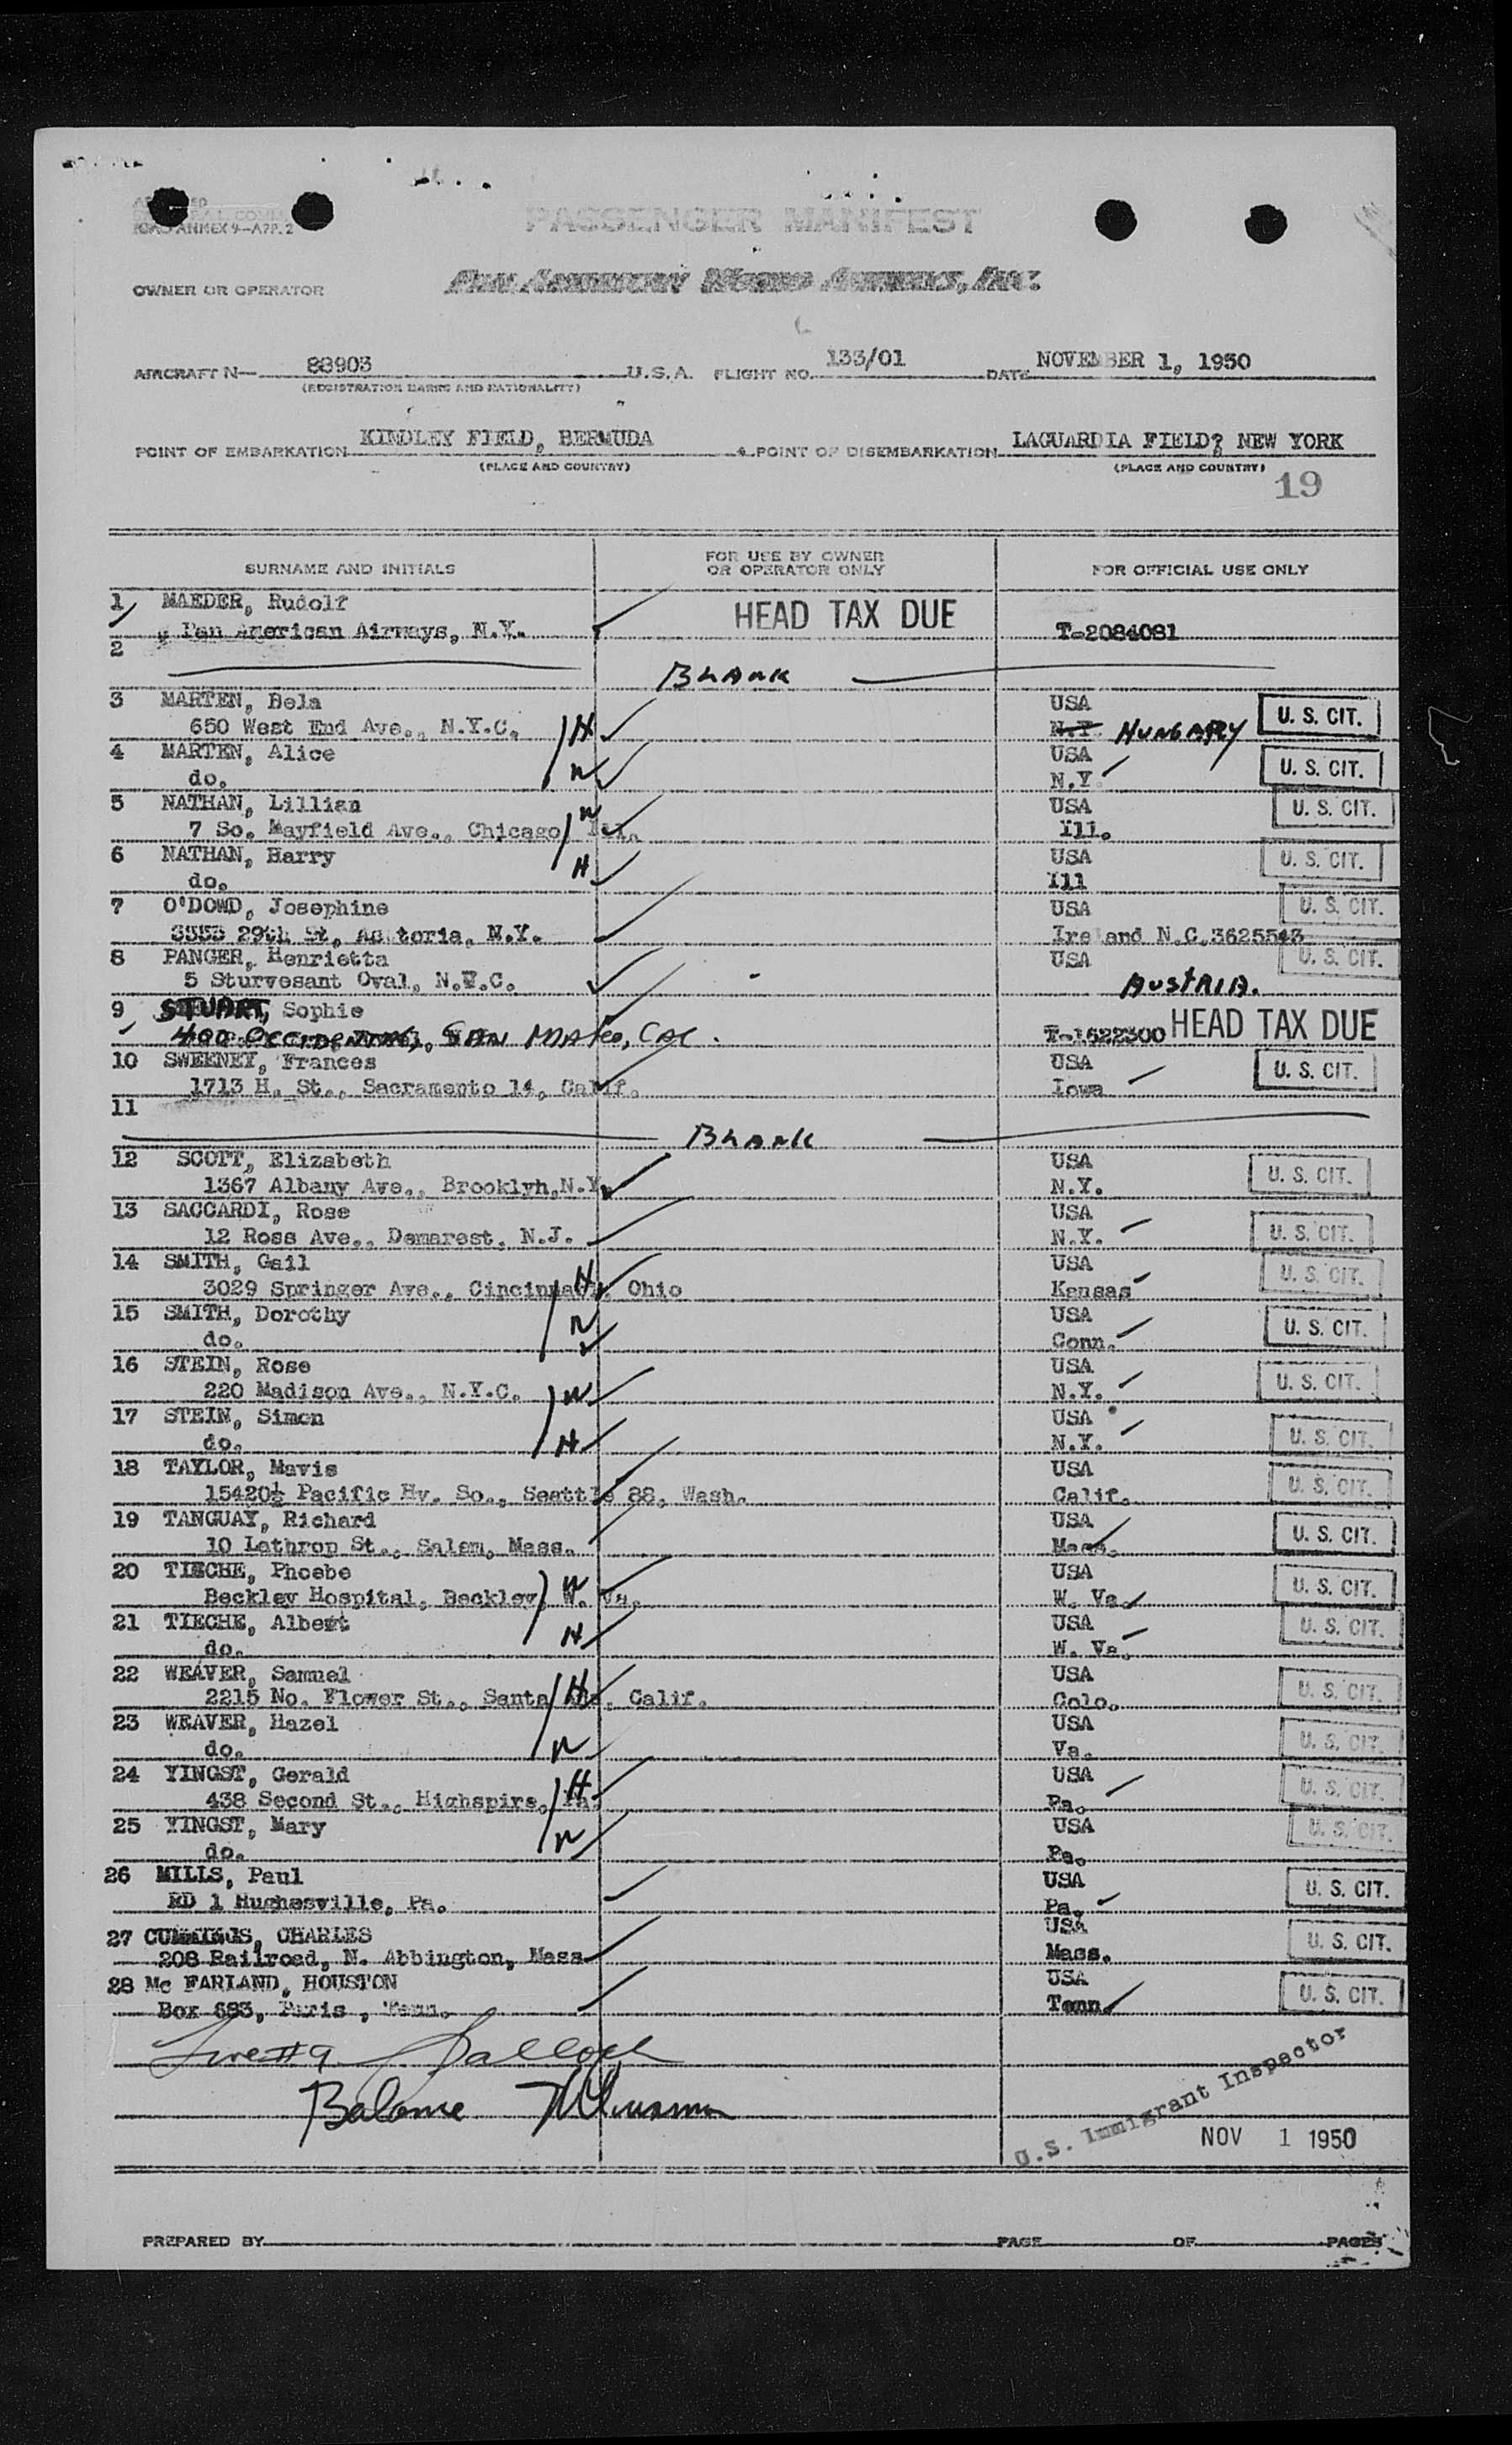 ICAO ANNEX 9—APP. 2
PASSENGER MANIFEST
OWNER OR OPERATOR PAN AMERICAN WORLD AIRWAYS, INC.
AIRCRAFT N— 88903 U.S.A. FLIGHT NO. 133/01 DATE NOVEMBER 1, 1950
(REGISTRATION MARKS AND NATIONALITY)
POINT OF EMBARKATION KINDLEY FIELD, BERMUDA POINT OF DISEMBARKATION LAGUARDIA FIELD? NEW YORK
(PLACE AND COUNTRY) (PLACE AND COUNTRY)
19
SURNAME AND INITIALS FOR USE BY OWNER OR OPERATOR ONLY FOR OFFICIAL USE ONLY
1 MAEDER, Rudolf HEAD TAX DUE
Pan American Airways, N.Y. T-2084081
2
BLANK
3 MARTEN, Bela USA U. S. CIT.
650 West End Ave., N.Y.C. H N.Y. HUNGARY
4 MARTEN, Alice USA U. S. CIT.
do. W N.Y.
5 NATHAN, Lillian W USA U. S. CIT.
7 So. Mayfield Ave., Chicago, Ill. Ill.
6 NATHAN, Harry H USA U. S. CIT.
do. Ill
7 O'DOWD, Josephine USA U. S. CIT.
3553 29th St, Astoria, N.Y. Ireland N.C.3625543
8 PANGER, Henrietta USA U. S. CIT.
5 Sturvesant Oval, N.Y.C. AUSTRIA.
9 STUART, Sophie
400 OCCIDENTAL, SAN MATEO, CAL. T-1622300 HEAD TAX DUE
10 SWEENEY, Frances USA U. S. CIT.
1713 H. St., Sacramento 14, Calif. Iowa
11
BLANK
12 SCOTT, Elizabeth USA U. S. CIT.
1367 Albany Ave., Brooklyh,N.Y. N.Y.
13 SACCARDI, Rose USA U. S. CIT.
12 Ross Ave., Demarest, N.J. N.Y.
14 SMITH, Gail H USA U. S. CIT.
3029 Springer Ave., Cincinnati, Ohio Kansas
15 SMITH, Dorothy W USA U. S. CIT.
do. Conn.
16 STEIN, Rose USA U. S. CIT.
220 Madison Ave., N.Y.C. W N.Y.
17 STEIN, Simon USA U. S. CIT.
do. H N.Y.
18 TAYLOR, Mavis USA U. S. CIT.
15420½ Pacific Hy. So., Seattle 88, Wash. Calif.
19 TANGUAY, Richard USA U. S. CIT.
10 Lathrop St., Salem, Mass. Mass.
20 TIECHE, Phoebe W USA U. S. CIT.
Beckley Hospital, Beckley, W. Va. W. Va.
21 TIECHE, Albert USA U. S. CIT.
do. H W. Va.
22 WEAVER, Samuel H USA U. S. CIT.
2215 No. Flower St., Santa Ana, Calif. Colo.
23 WEAVER, Hazel USA U. S. CIT.
do. W Va.
24 YINGST, Gerald H USA U. S. CIT.
438 Second St., Highspire, Pa. Pa.
25 YINGST, Mary USA U. S. CIT.
do. W Pa.
26 MILLS, Paul USA U. S. CIT.
RD 1 Hughesville, Pa. Pa.
27 CUMMINGS, CHARLES USA U. S. CIT.
208 Railroad, N. Abbington, Mass Mass.
28 Mc FARLAND, HOUSTON USA U. S. CIT.
Box 693, Paris, Tenn. Tenn.
U.S. Immigrant Inspector
NOV 1 1950
PREPARED BY PAGE OF PAGES